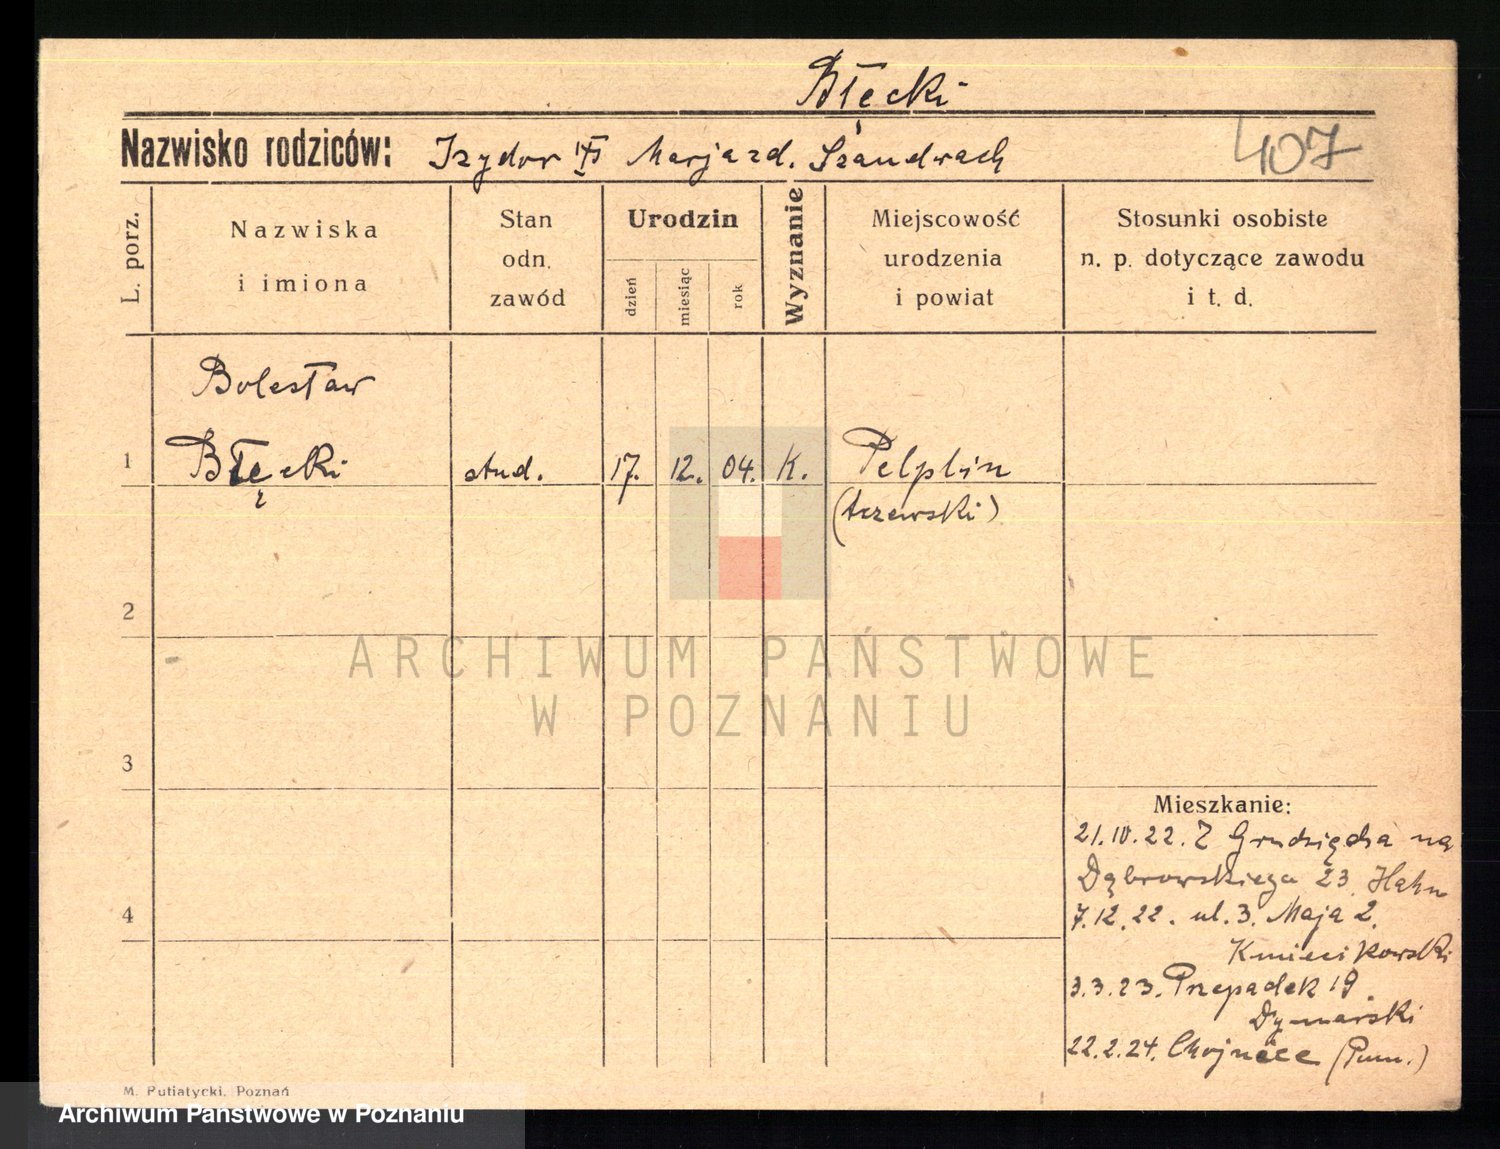 Błęcki
407
Nazwisko rodziców: Izydor Marja zd. Szandrach
L. porz.
Nazwiska
i imiona
Stan
odn.
zawód
Urodzin
dzień
miesiąc
rok
Wyznanie
Miejscowość
urodzenia
i powiat
Stosunki osobiste
n. p. dotyczące zawodu
i t. d.
Bolesław
1 Błęcki stud. 17. 12. 04. K. Pelplin
(tczewski)
2
3
4
Mieszkanie:
21.10.22. Z Grudziądza na
Dąbrowskiego 23 Hahn
7.12.22. ul. 3. Maja 2.
Kmiecikowski
3.3.23. Przepadek 19
Dymarski
22.2.24. Chojnice (Pom.)
ARCHIWUM PAŃSTWOWE
W POZNANIU
M. Putiatycki, Poznań
Archiwum Państwowe w Poznaniu